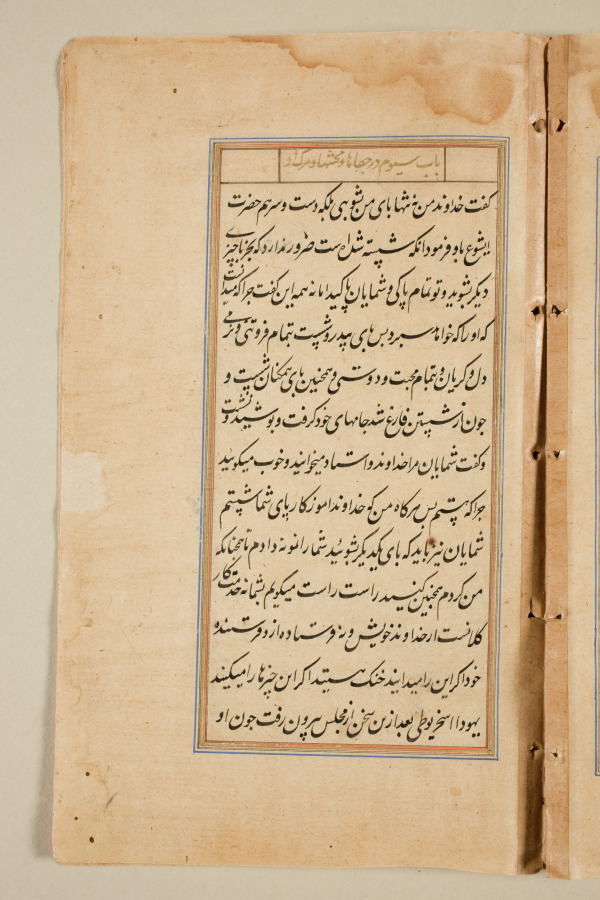 باب سیوم در جفاها و محنتها و مرگ او
گفت خداوند من نه تنها پای من بشوی بلکه دست و سر هم حضرت
ایشوع باو فرمود انکه شسته شده است ضرور ندارد که بجز پا چیزی
دیگر بشوید و تو تمام پاکی و شمایان پاکید اما نه همه این گفت چرا که میدانست
که او را که خواهد سپرد پس پای پیدرو شست بتمام فروتنی و نرمی
دل و گریان و بتمام محبت و دوستی و همچنین پای همگنان شست و
چون از شستن فارغ شد جامهای خود گرفت و پوشید و نشست
و گفت شمایان مرا خداوند و استاد میخوانید و خوب میگوئید
چرا که هستم پس هرگاه من که خداوند اموزگار پای شما شستم
شمایان نیز باید که پای یکدیگر بشوئید شما را نمونه دادم تا همچنانکه
من کردم همچنین کنید راست راست میگویم بشما نه خدمتکار
کلانست از خداوند خویش و نه فرستاده از فرستنده
خود اگر این را میدانید خنک هستید اگر این چیزها را میکنید
یهودا اسخریوطی بعد ازین سخن از مجلس بیرون رفت چون او